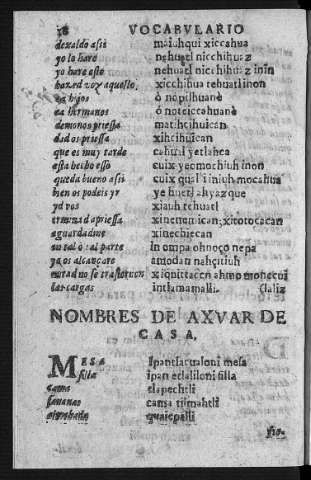 VOCABVLARIO
dexaldo assi maiuhqui xiccahua
yo lo hare nehuatl nicchihuaz
yo hare esto nehuatl nicchihuaz inin
hazed vos aquello. xicchihua tehuatl inon
ea hijos ò nopilhuanè
ea hermanos ò noteiccahuanè
demonos priessa matihcihuican
dad os priessa xihcihuican
que es muy tarde cahuel yetlahca
esta hecho esso cuix yeomochiuh inon
queda bueno assi cuix qualli iniuh mocahua
bien os podeis yr ye huetl ahyaz que
yd vos xiauh tehuatl
apriessa xinenemican; xitotocacan
aguardadme xinechiecan
en tal ò tal parte in ompa ohnoço nepa
ya os alcançare amodan nahçitiuh
mirad no se trastornen xiquittacan ahmo monecui
las cargas intlamamalli.
NOMBRES DE AXVAR DE
CASA.
MESA Ipantlaqualoni mesa
silla ipan etlaliloni silla
cama tlapechtli
sauanas cama tilmahtli
almohada quaicpalli